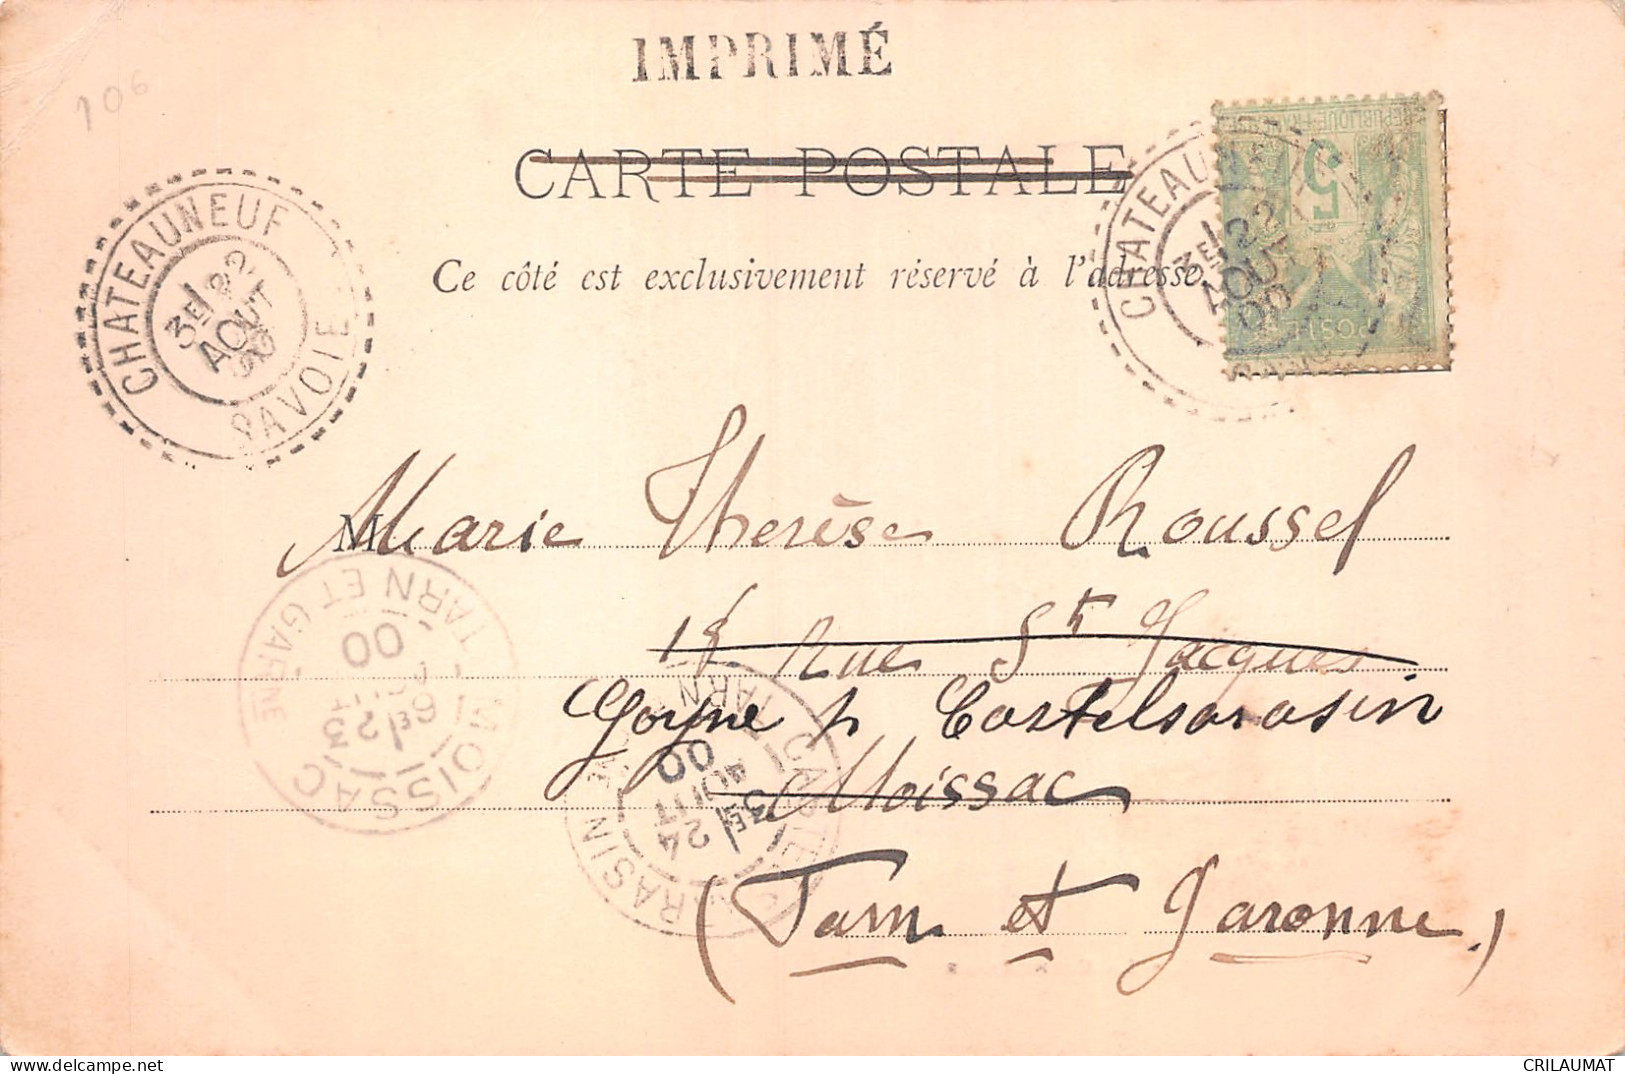 IMPRIMÉ
106
CARTE POSTALE
Ce côté est exclusivement réservé à l'adresse.
CHATEAUNEUF
3E/ 22
AOUT
00
SAVOIE
CHATEAUN
3E/ 22
AOUT
00
REPUBLIQUE FRA
5
POSTE
M Marie Thérèse Roussel
18 Rue St Jacques
Goyne p Castelsarasin
Moissac
(Tarn et Garonne.)
MOISSAC
6E/ 23
00
TARN ET GARNE
CASTE RASIN
3E/ 24
AOUT
00
TARN
CRILAUMAT